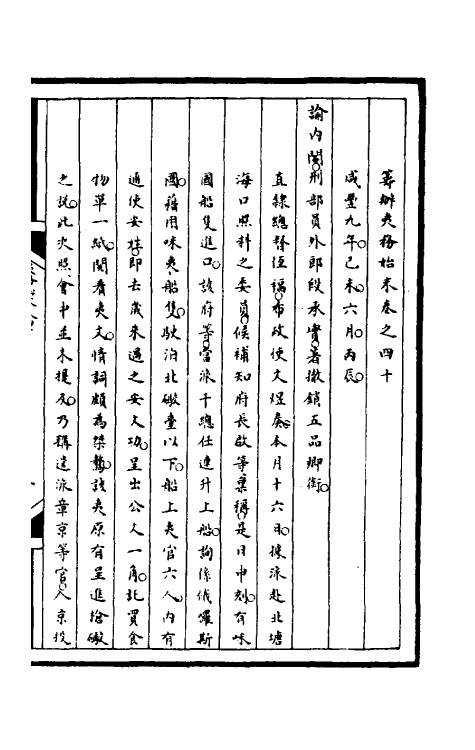 籌辦夷務始末卷之四十
咸豐九年己未六月丙辰
諭內閣刑部員外郎段承實著撤銷五品卿銜
直隸總督恆福布政使文煜奏本月十六日據派赴北塘
海口照料之委員候補知府長啟等稟稱是日申刻有咪
國船隻進口該府等當派千總任連升上船詢係俄羅斯
國藉用咪夷船隻駛泊北礮臺以下船上夷官六人內有
通使安姓即去歲來過之安文公呈出公文一角託買食
物草一紙閱看夷文情詞頗為桀驁該夷原有呈進槍礮
之說此次照會中並未提及乃稱遣派章京等官入京投